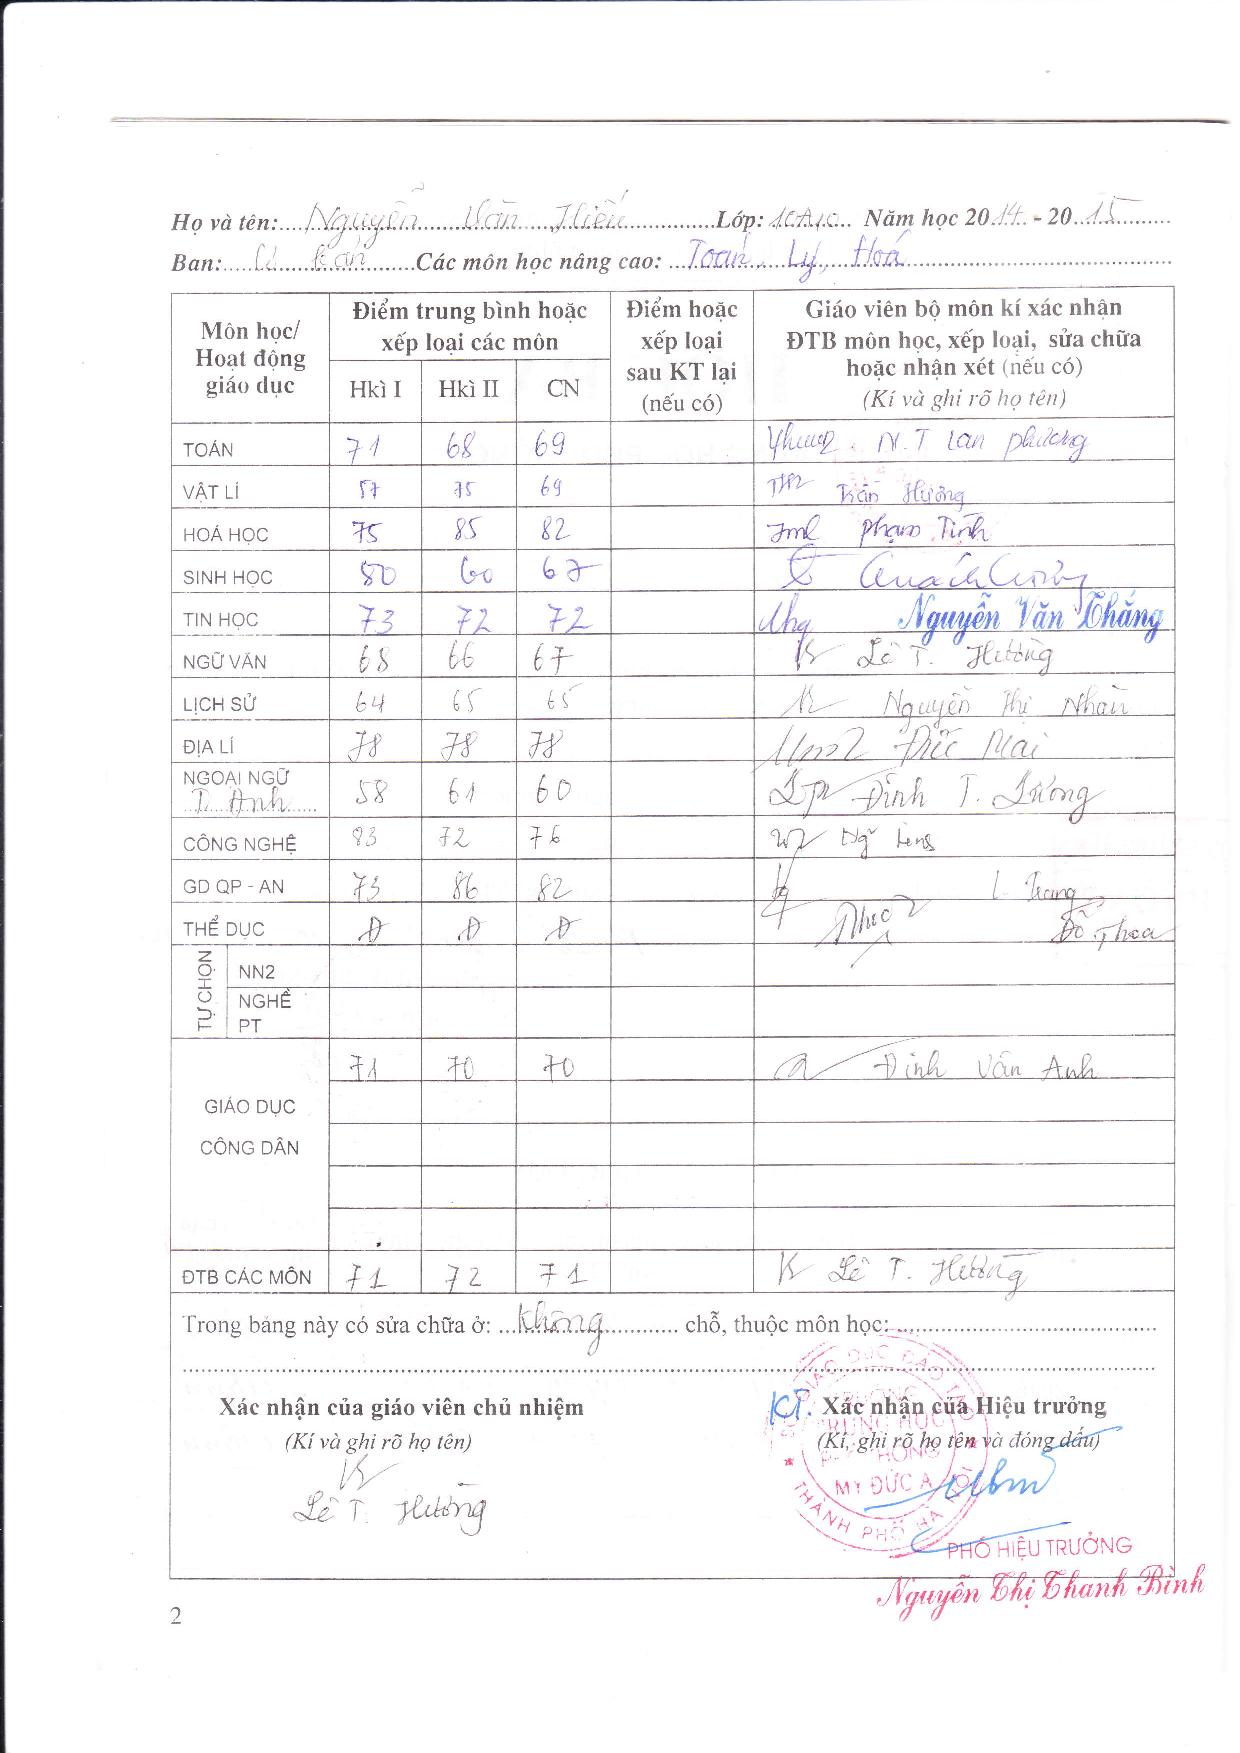 Họ và tên: Nguyễn Văn Hiếu Lớp: 10A10 Năm học 2014 - 2015
Ban: Cơ bản Các môn học nâng cao: Toán, Lý, Hoá
Môn học/ Hoạt động giáo dục
Điểm trung bình hoặc xếp loại các môn
Hkì I Hkì II CN
Điểm hoặc xếp loại sau KT lại (nếu có)
Giáo viên bộ môn kí xác nhận ĐTB môn học, xếp loại, sửa chữa hoặc nhận xét (nếu có)
(Kí và ghi rõ họ tên)
TOÁN 71 68 69 N.T Lan Phương
VẬT LÍ 57 75 69 Trần Hường
HOÁ HỌC 75 85 82 Phạm Tính
SINH HỌC 80 60 67
TIN HỌC 73 72 72 Nguyễn Văn Thắng
NGỮ VĂN 68 66 67 Lê T. Hường
LỊCH SỬ 64 65 65 Nguyễn Thị Nhàn
ĐỊA LÍ 78 78 78 Đức Mai
NGOẠI NGỮ
T. Anh 58 61 60 Đinh T.
CÔNG NGHỆ 83 72 76
GD QP - AN 73 86 82 Trang
THỂ DỤC Đ Đ Đ Đỗ Thoa
TỰ CHỌN
NN2
NGHỀ PT
GIÁO DỤC CÔNG DÂN 71 70 70 Đinh Vân Anh
ĐTB CÁC MÔN 71 72 71 Lê T. Hường
Trong bảng này có sửa chữa ở: Không chỗ, thuộc môn học:
Xác nhận của giáo viên chủ nhiệm
(Kí và ghi rõ họ tên)
Lê T. Hường
KT. Xác nhận của Hiệu trưởng
(Kí, ghi rõ họ tên và đóng dấu)
SỞ GIÁO DỤC ĐÀO TẠO
TRƯỜNG
TRUNG HỌC
PHỔ THÔNG
MỸ ĐỨC A
THÀNH PHỐ HÀ NỘI
PHÓ HIỆU TRƯỞNG
Nguyễn Thị Thanh Bình
2